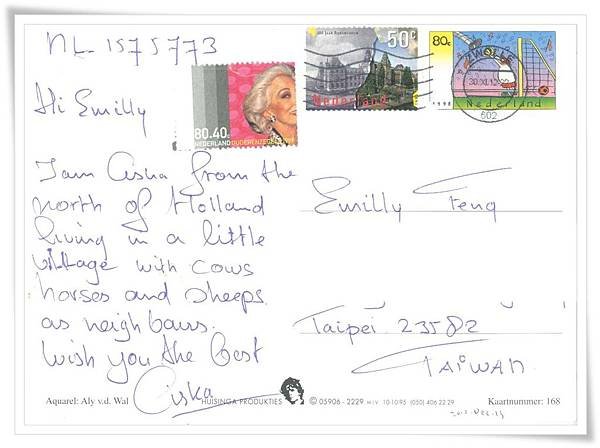 NL 1575773
50c
Nederland
80c
ZWOLLE
30.XI.12
602
1998
Nederland
80+40c
NEDERLAND OUDERENZEGEL
Hi Emilly
I am Ciska from the
north of Holland
living in a little
village with cows
horses and sheeps
as neighbours.
Wish you the best
Ciska
Emilly Feng
Taipei 23582
TAIWAN
Aquarel: Aly v.d. Wal
HUISINGA PRODUKTIES
© 05906 - 2229 M.I.V. 10-10-95 (050) 406 22 29
Kaartnummer: 168